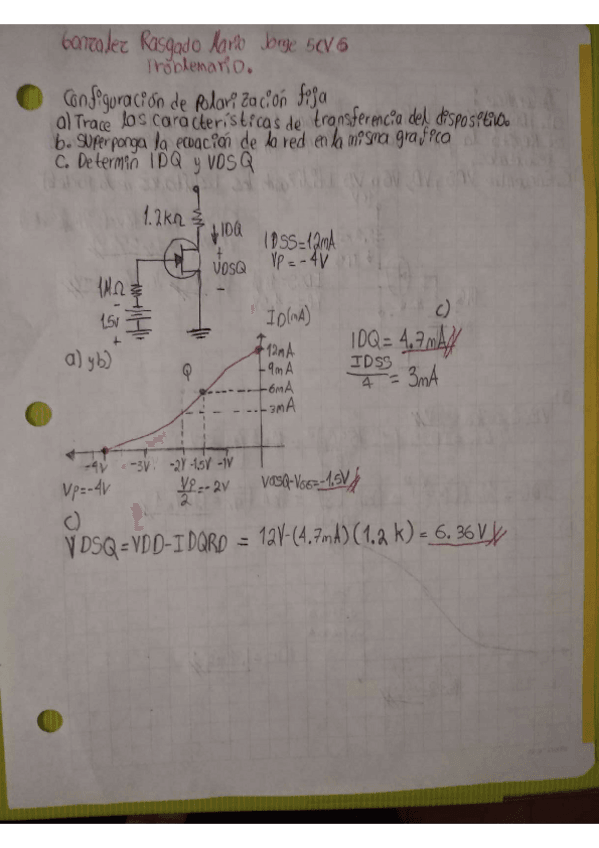 Gonzalez Rasgado Mario Jorge 5CV6
Problemario.
Configuración de Polarización fija
a) Trace las características de transferencia del dispositivo.
b. Superponga la ecuación de la red en la misma grafica
c. Determin IDQ y VDSQ
1.2kΩ
↓IDQ
+
VDSQ
-
IDSS=12mA
VP=-4V
1MΩ
-
1.5v
+
ID(mA)
c)
IDQ= 4.7mA
IDSS/4 = 3mA
a) y b)
Q
12mA
9mA
6mA
3mA
-4V -3V -2V -1.5V -1V
VP=-4V
VP/2 =-2V
VGSQ-VGG=-1.5V
c)
VDSQ=VDD-IDQRD = 12V-(4.7mA)(1.2k)= 6.36V